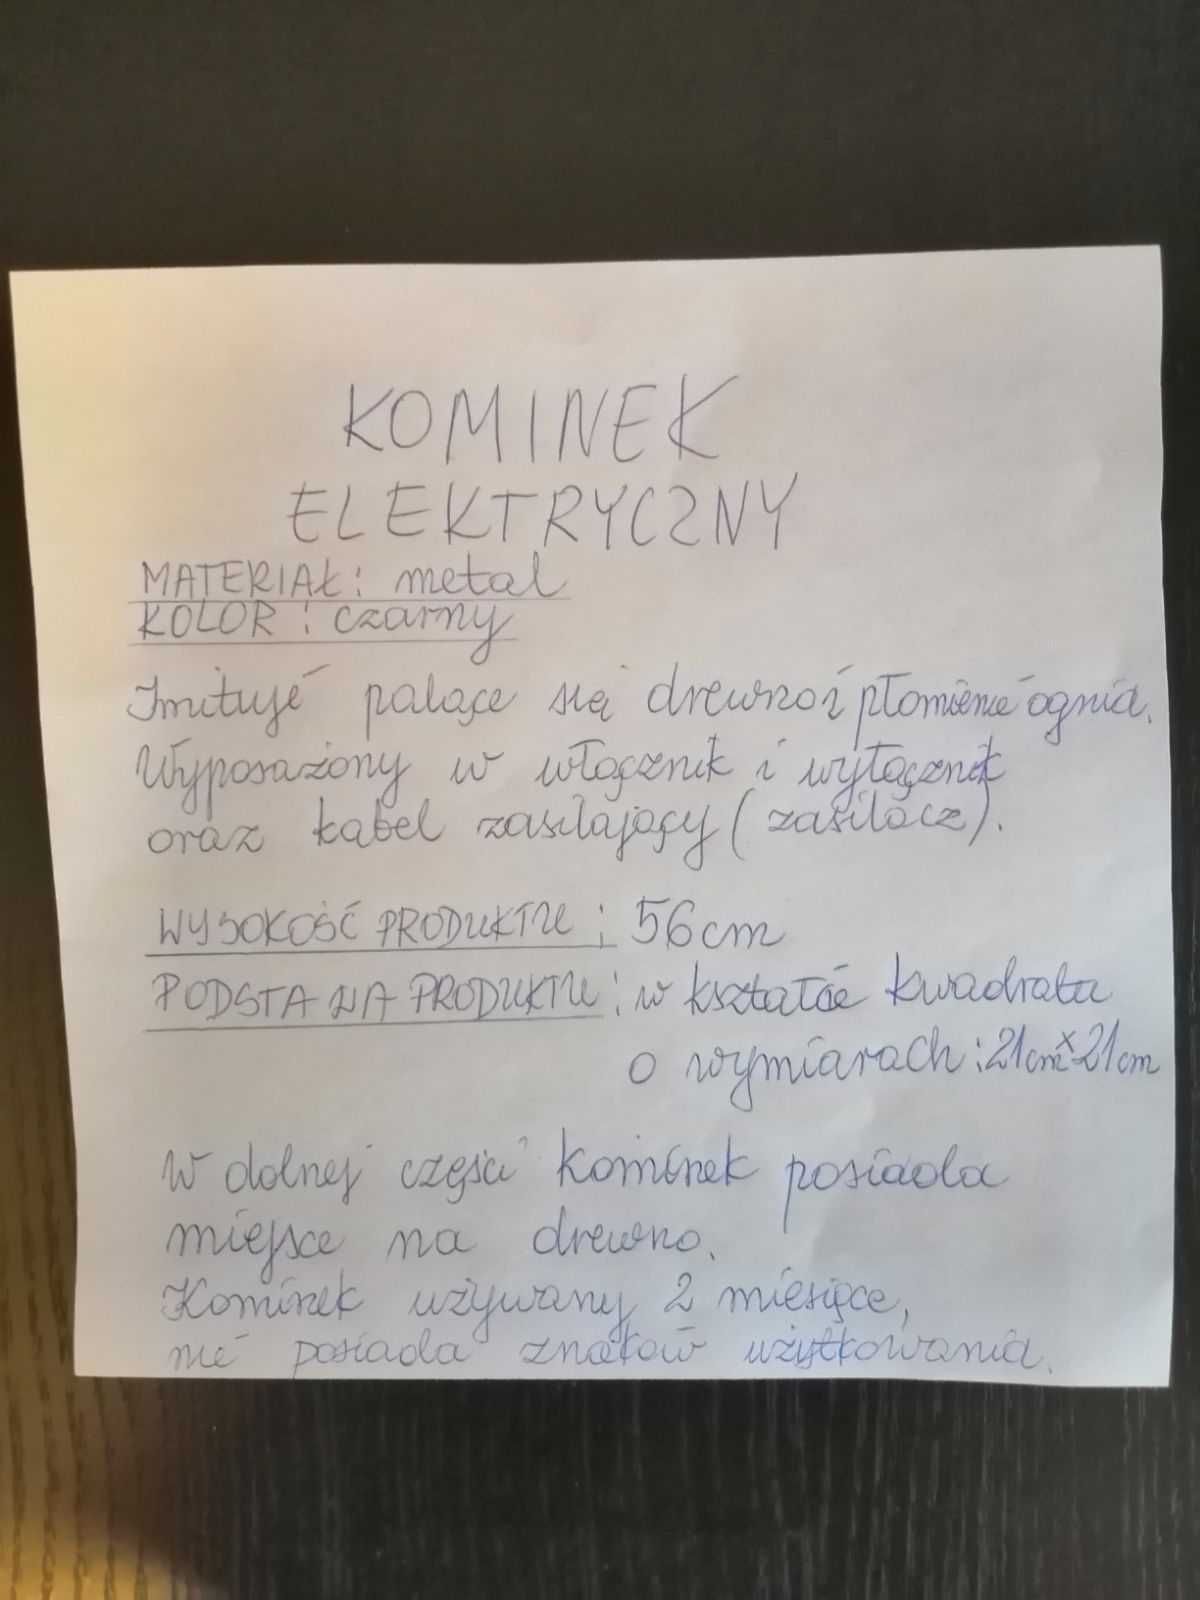 KOMINEK
ELEKTRYCZNY
MATERIAŁ: metal
KOLOR: czarny
Imituje palące się drewno i płomienie ognia.
Wyposażony w włącznik i wyłącznik
oraz kabel zasilający (zasilacz).
WYSOKOŚĆ PRODUKTU: 56cm
PODSTAWA PRODUKTU: w kształcie kwadratu
o wymiarach: 21cm x 21cm
W dolnej części kominek posiada
miejsce na drewno.
Kominek używany 2 miesiące,
nie posiada znaków użytkowania.